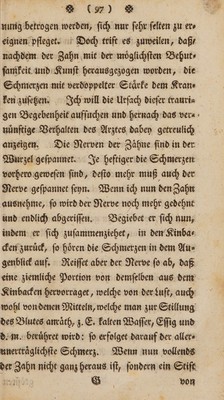 ( 97 )
nung betrogen werden, sich nur sehr selten zu er-
eignen pfleget. Doch trift es zuweilen, daß
nachdem der Zahn mit der möglichsten Behut-
samkeit und Kunst herausgezogen worden, die
Schmerzen mit verdoppelter Stärke dem Kran-
ken zusetzen. Ich will die Ursach dieser trauri-
gen Begebenheit aufsuchen und hernach das ver-
nünftige Verhalten des Arztes dabey getreulich
anzeigen. Die Nerven der Zähne sind in der
Wurzel gespannet. Je heftiger die Schmerzen
vorhero gewesen sind, desto mehr muß auch der
Nerve gespannet seyn. Wenn ich nun den Zahn
ausnehme, so wird der Nerve noch mehr gedehnt
und endlich abgerissen. Begiebet er sich nun,
indem er sich zusammenziehet, in den Kinba-
cken zurück, so hören die Schmerzen in dem Au-
genblick auf. Reisset aber der Nerve so ab, daß
eine ziemliche Portion von demselben aus dem
Kinbacken hervorraget, welche von der Luft, auch
wohl von denen Mitteln, welche man zur Stillung
des Blutes anräth, z. E. kalten Wasser, Essig und
d. m. berühret wird: so erfolget darauf der aller-
unerträglichste Schmerz. Wenn nun vollends
der Zahn nicht ganz heraus ist, sondern ein Stift
G von